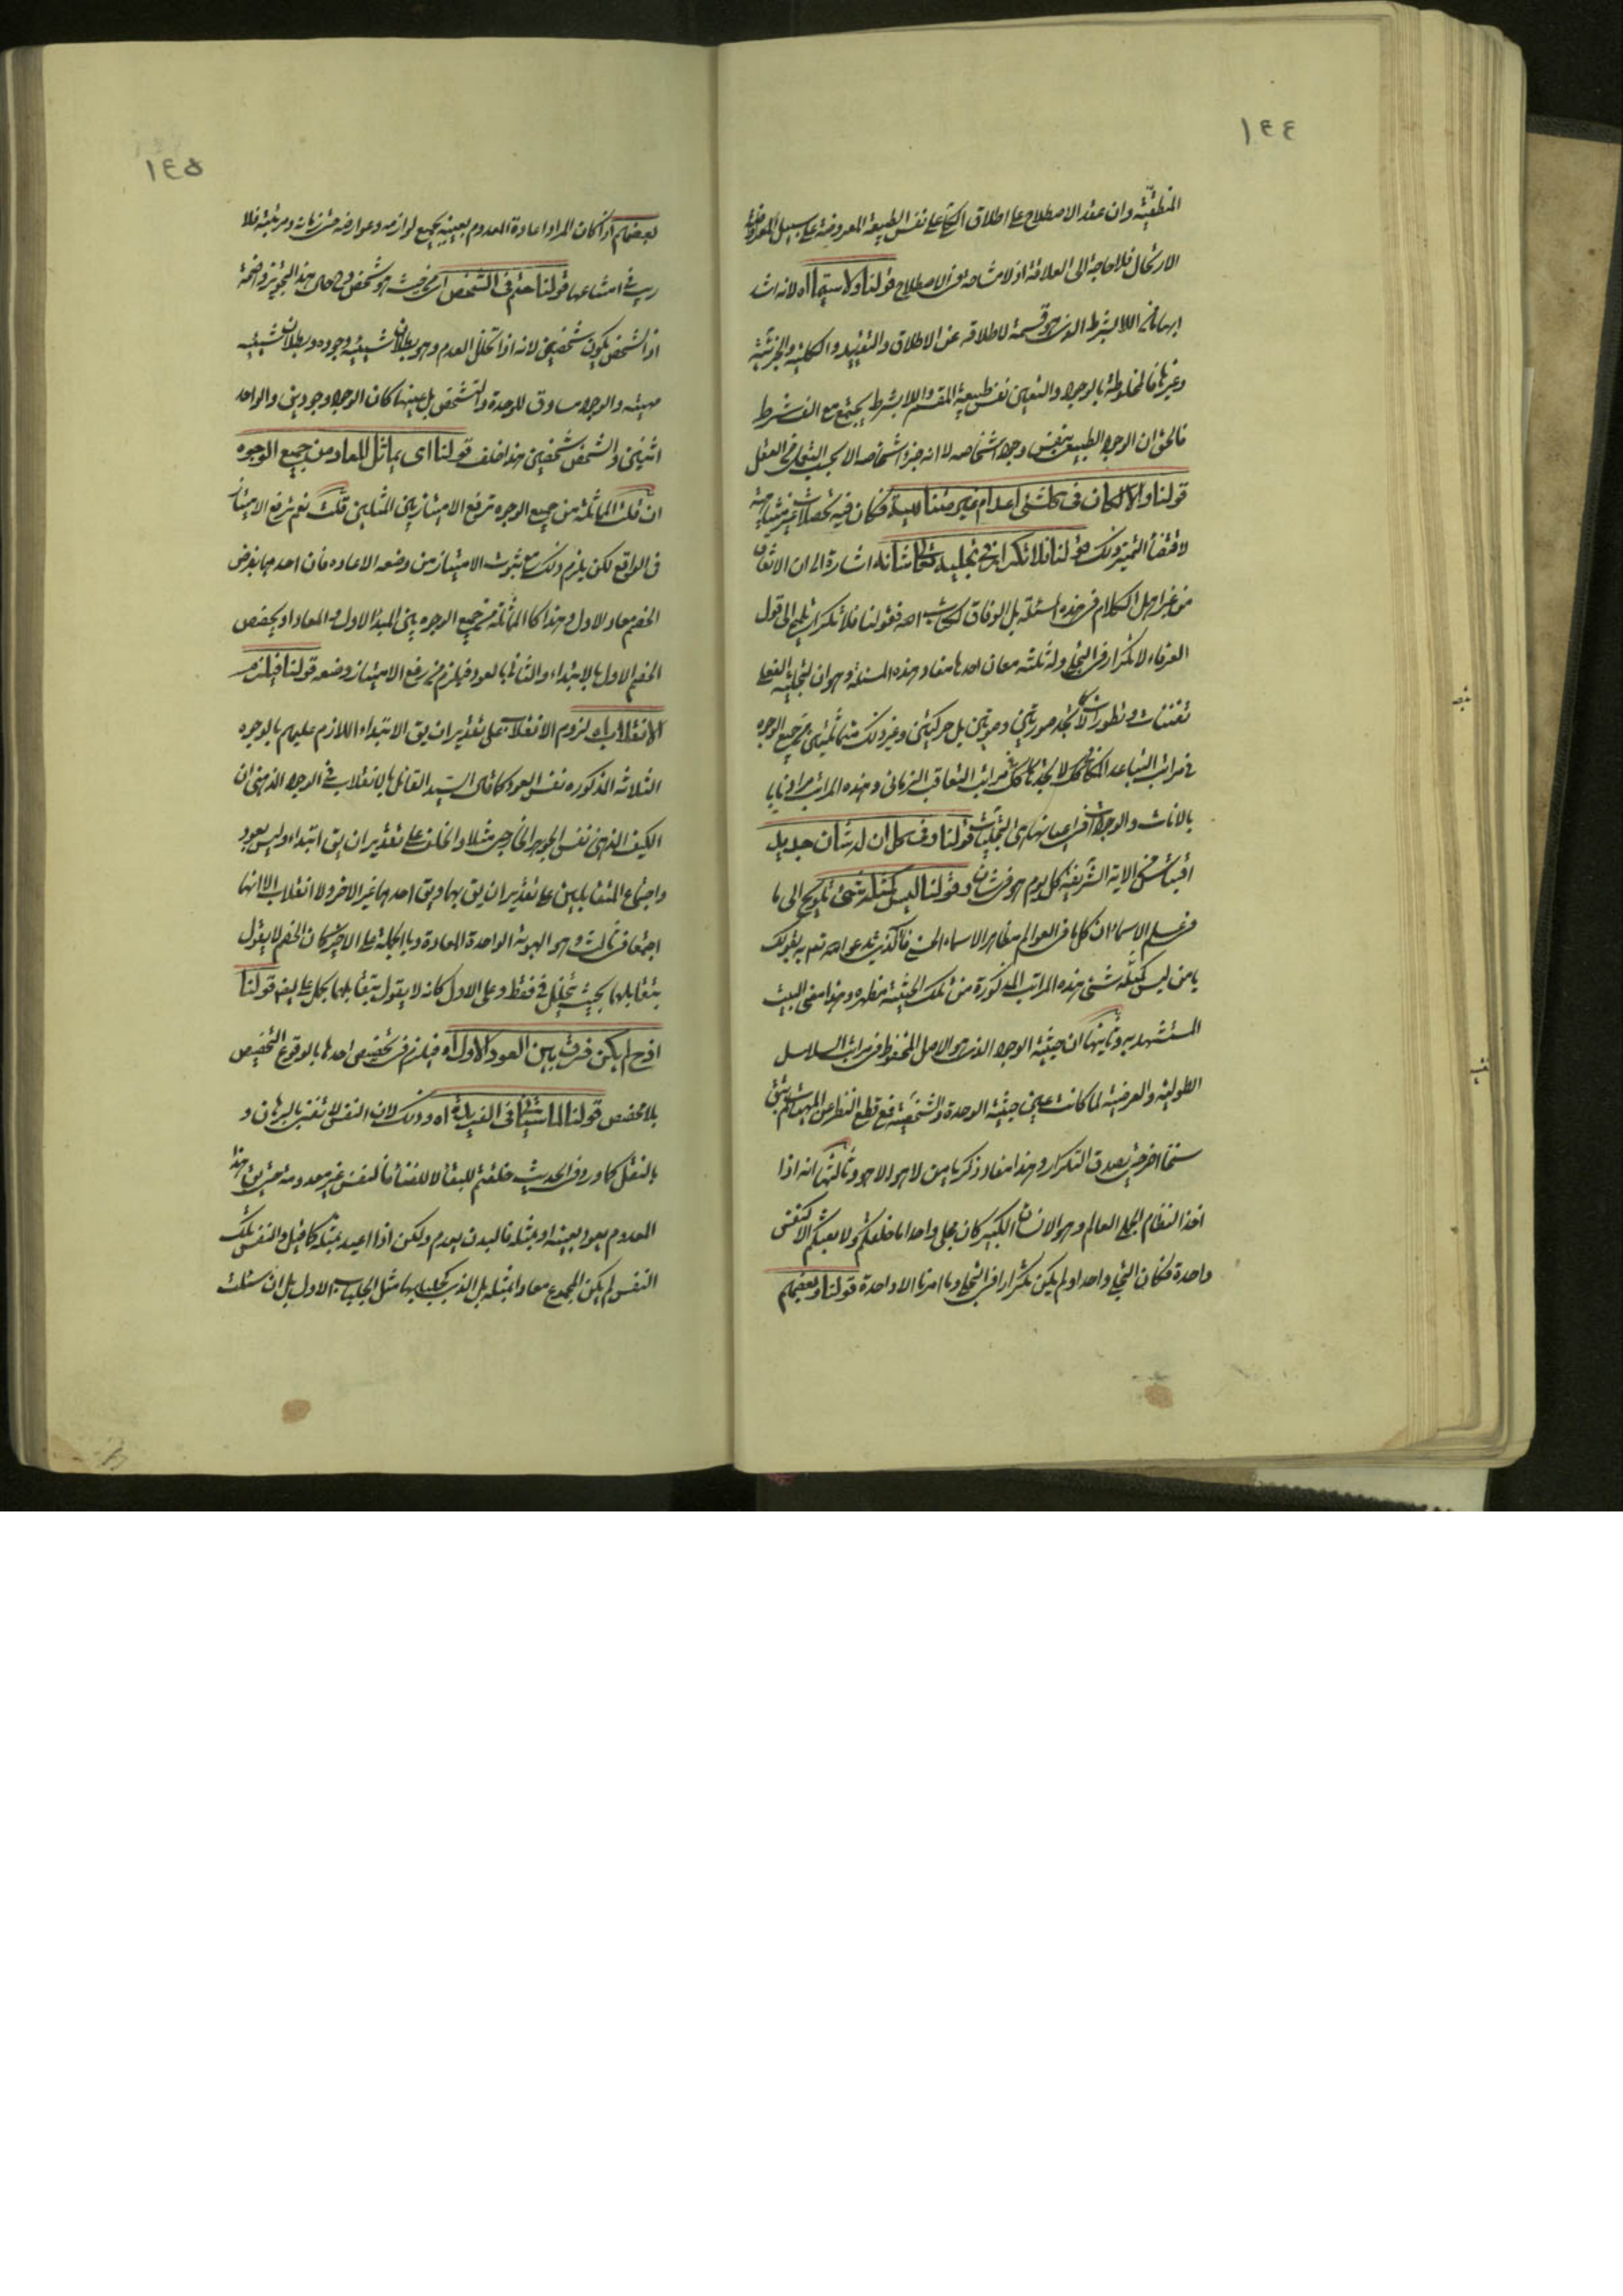 ١٤٤
المنطقية وان عقد الاصطلاح على اطلاق الكلى على نفس الطبيعة المعروضة على سبيل
الارتجال فلا حاجة الى العلاقة اذ لا مشاحة فى الاصطلاح قولنا ولا سيما اه لانه اشد
ابهاما من اللابشرط الذى هو قسمة لاطلاقه عن الاطلاق والتقييد والكلية والجزئية
وغيرها فالمخلوطة بالوجود والتعين نفس طبيعة المقسم واللابشرط يجتمع مع الف شرط
فالحق ان الوجود الطبيعى بنفس وجود اشخاصه لا انه جزء اشخاصه الا بحسب التعمل فى العقل
قولنا والا لكان فى كل شئ اعدام غير متناهية فكان فيه تحصلات غير متناهية
لاقتضاء التميز ذلك قولنا فلا تكرار فى تجليه تعالى شانه اشارة الى ان الاتفاق
من غير اهل الكلام فى هذه المسئلة بل الوفاق فقولنا فلا تكرار تلميح الى قول
العرفاء لا تكرار فى التجلى وله ثلثة معان احدها مفاد هذه المسئلة وهو ان لتجليه الفعلى
تفننات وتطورات لا تجد صورتين وصوتين بل حركتين وغير ذلك متماثلتين من جميع الوجوه
فى مراتب التباعد المكانى كما لا تجدها كك فى مراتب التعاقب الزمانى وهذه المراتب
بالاناث والوجودات فى اعيانها هى التجليات قولنا وفى كل ان له شان جديد
اقتباس من الاية الشريفة كل يوم هو فى شان وقولنا ليس كمثله شئ تلويح الى ما
فى علم الاسماء ان كل ما فى العوالم مظاهر الاسماء الحسنى تدعو الله تعالى به بقولك
يا من ليس كمثله شئ هذه المراتب المذكورة من تلك الحيثية مظهره وهذا معنى البيت
المستشهد به وثانيها ان حيثية الوجود الذى هو الاصل المحفوظ فى مراتب السلاسل
الطولية والعرضية لما كانت عين حيثية الوحدة والشخصية فمع قطع النظر عن المهيات لم تبق
سنخا اخر حتى يصدق التكرار وهذا مفاد ذكر يا من لا هو الا هو وثالثها انه اذا
اخذ النظام الجملى العالم وهو الانسان الكبير كان مجلى واحدا ما خلقكم ولا بعثكم الا كنفس
واحدة فكان التجلى واحدا ولم يكن تكرار فى التجلى وما امرنا الا واحدة قولنا وبعضهم
١٤٥
بعضهم اذا كان المراد اعادة المعدوم بعينه بجميع لوازمه وعوارضه حتى زمانه ومرتبته فلا
ريب فى امتناعها قولنا حتم فى الشخص اى من حيث هو شخص هذا التجويز واضحة
اذ الشخص يكون شخصين لانه اذا تخلل العدم وهو بطلان شيئية وجوده وبطلان شيئية
مهيته والوجود مساوق للوحدة والتشخص بل عينها كان الوجود وجودين والواحد
اثنين والشخص شخصين هذا خلف قولنا اى يماثل المعاد من جميع الوجوه
ان قلت المماثلة من جميع الوجوه ترفع الامتياز بين المثلين قلت نعم ترفع الامتياز
فى الواقع لكن يلزم ذلك مع ثبوت الامتياز من وضعه الاعادة فان احدهما بفرض
الخصم معاد الاول وهذا كما المماثلة من جميع الوجوه بين المبدأ الاول والمعاد او تخصيص
الخصم الاول بالابتداء والثانى بالعود فيلزم من رفع الامتياز وضعه قولنا فيلزم
الانقلاب اه لزوم الانقلاب على تقدير ان يق الابتداء اللازم عليهم بالوجوه
الثلاثة المذكورة نفس العود كما قال السيد القائل بالانقلاب فى الوجود الذهنى ان
الكيف الذهنى نفس الجوهر الخارجى مثلا والخلف على تقدير ان يق ابتداء وليس بعود
واجتماع المتقابلين على تقدير ان يق بهما ويق احدهما غير الاخر ولا انقلاب الا انها
اجتمعا فى ثالث وهو الهوية الواحدة المعادة وبالجملة على الاخير كان الخصم لا يقول
بتقابلهما بحيث فقط وعلى الاول كانه لا يقول بتقابلهما قولنا
اذ ح لم يكن فرق بين العود الاول اه فيلزم فى تخصيص احدها بالوقوع التخصيص
بلا مخصص قولنا لما سيأتى فى الفريدة اه وذلك لان النفس لا تفنى بالبرهان و
بالنقل كما ورد فى الحديث خلقتم للبقاء لا للفناء فالنفس غير معدومة حتى يق هذا
المعدوم يعود بعينه او بمثله فالبدن يعدم ولكن اذا اعيد بمثله كما قيل والنفس تلك
النفس لم يكن المجموع معادا بمثله بل الذى الاول بل ان سئلت